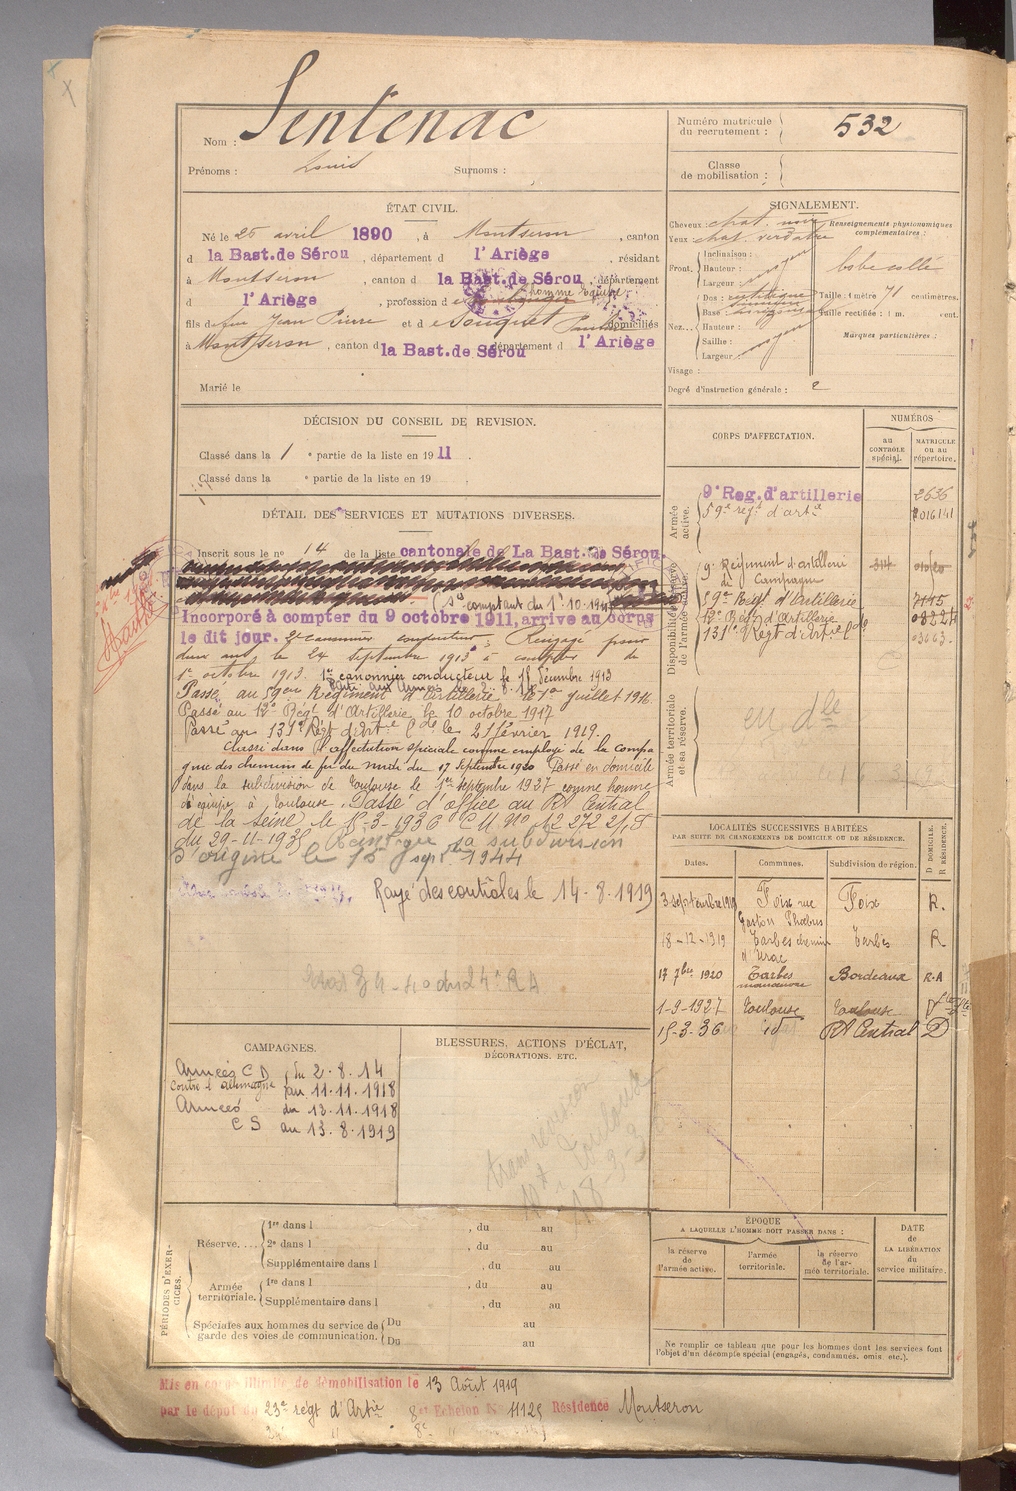 Nom : Sentenac
Prénoms : Louis Surnoms :
Numéro matricule du recrutement : 532
Classe de mobilisation :
ÉTAT CIVIL.
Né le 25 avril 1890, à Montseron, canton
d la Bast. de Sérou, département d l'Ariège, résidant
à Montseron, canton d la Bast. de Sérou, département
d l'Ariège, profession d homme équipe
fils de feu Jean Pierre et d e Souquet domiciliés
à Montseron, canton d la Bast. de Sérou département d l'Ariège
Marié le
SIGNALEMENT.
Cheveux chat. noir
Yeux chat. verdâtre
Renseignements physionomiques complémentaires :
Front. Inclinaison :
Hauteur :
Largeur :
Nez. Dos :
Base :
Hauteur :
Saillie :
Largeur :
lobe collé
Taille : 1 mètre 71 centimètres.
Taille rectifiée : 1 m. cent.
Marques particulières :
Visage :
Degré d'instruction générale : 2
DÉCISION DU CONSEIL DE REVISION.
Classé dans la 1 e partie de la liste en 1911.
Classé dans la e partie de la liste en 19 .
DÉTAIL DES SERVICES ET MUTATIONS DIVERSES.
Inscrit sous le n° 14 de la liste cantonale de La Bast. de Sérou.
comptant du 1er 10-1911
Incorporé à compter du 9 octobre 1911, arrive au corps
le dit jour. 2e canonnier conducteur. Rengagé pour
deux ans le 24 septembre 1913 à compter du
1er octobre 1913. 1er canonnier conducteur le 15 Décembre 1913
Parti aux Armées le 2.8.14
Passé au 59ème Régiment d'Artillerie le 1er Juillet 1916.
Passé au 12e Régt d'Artillerie le 10 octobre 1917
Passé au 131e Régt d'Artie le 21 février 1919.
Classé dans l'affectation spéciale comme employé de la Compa
gnie des chemins de fer du midi du 17 Septembre 1920 Passé en domicile
dans la subdivision de Toulouse le 1er septembre 1927 comme homme
d'équipe à Toulouse. Passé d'office au RA Central
de la Seine le 15-3-1936 CM N° 12272 2/8
du 29-11-1935 Réintégré la subdivision
d'origine le 15 sept 1944
Rayé des contrôles le 14-8-1919
CORPS D'AFFECTATION.
NUMÉROS
AU CONTRÔLE spécial.
MATRICULE ou au répertoire.
Armée active.
9e Reg. d'artillerie 2636
59e regt d'artie
Disponibilité et réserve de l'armée active.
9e Régiment d'artillerie de Campagne
59e Régt d'Artillerie
12e Régt d'Artillerie 08224
131e Régt d'Artie 03063
Armée territoriale et sa réserve.
en dle
LOCALITÉS SUCCESSIVES HABITÉES
PAR SUITE DE CHANGEMENTS DE DOMICILE OU DE RÉSIDENCE.
Dates. Communes. Subdivision de région. D DOMICILE. R RÉSIDENCE.
3 septembre 1919 Foix rue Gaston Phoebus Foix R.
18-12-1919 Tarbes chemin d'Urac Tarbes R
17 7bre 1920 Tarbes manœuvre Bordeaux R.A
1-9-1927 Toulouse Toulouse D
15-3-36 id RA Central D
CAMPAGNES.
Armées C D du 2.8.14
contre l'allemagne au 11.11.1918
Armées du 13.11.1918
C S au 13.8.1919
BLESSURES, ACTIONS D'ÉCLAT,
DÉCORATIONS, ETC.
Toulouse
PÉRIODES D'EXERCICES.
Réserve.... 1re dans l , du au
2e dans l , du au
Supplémentaire dans l , du au
Armée territoriale. 1re dans l , du au
Supplémentaire dans l , du au
Spéciales aux hommes du service de garde des voies de communication. Du au
Du au
ÉPOQUE
A LAQUELLE L'HOMME DOIT PASSER DANS :
la réserve de l'armée active.
l'armée territoriale.
la réserve de l'armée territoriale.
DATE de LA LIBÉRATION du service militaire.
Ne remplir ce tableau que pour les hommes dont les services font l'objet d'un décompte spécial (engagés, condamnés, omis, etc.).
Mis en congé illimité de démobilisation le 13 Août 1919
par le dépôt du 23e régt d'Artie 8e Echelon N° 11125 Résidence Montseron